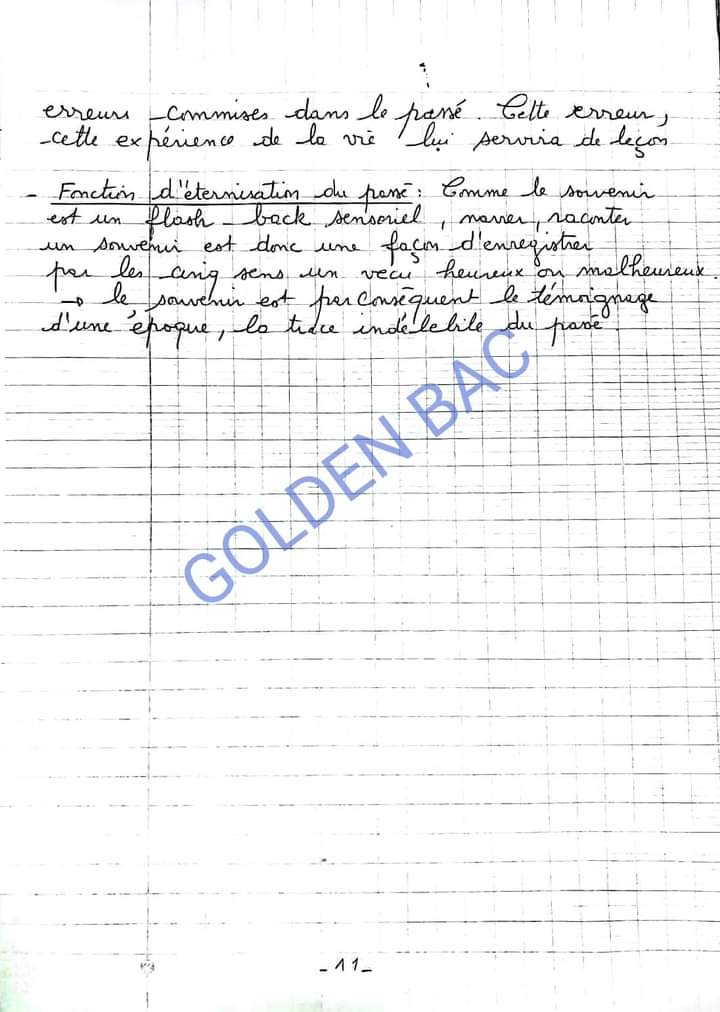 erreurs commises dans le passé. Cette erreur,
cette expérience de la vie lui servira de leçon
- Fonction d'éternisation du passé : Comme le souvenir
est un flash-back sensoriel, narrer, raconter
un souvenir est donc une façon d'enregistrer
par les cinq sens un vécu heureux ou malheureux.
→ le souvenir est par conséquent le témoignage
d'une époque, la trace indélébile du passé.
GOLDEN BAC
- 11 -